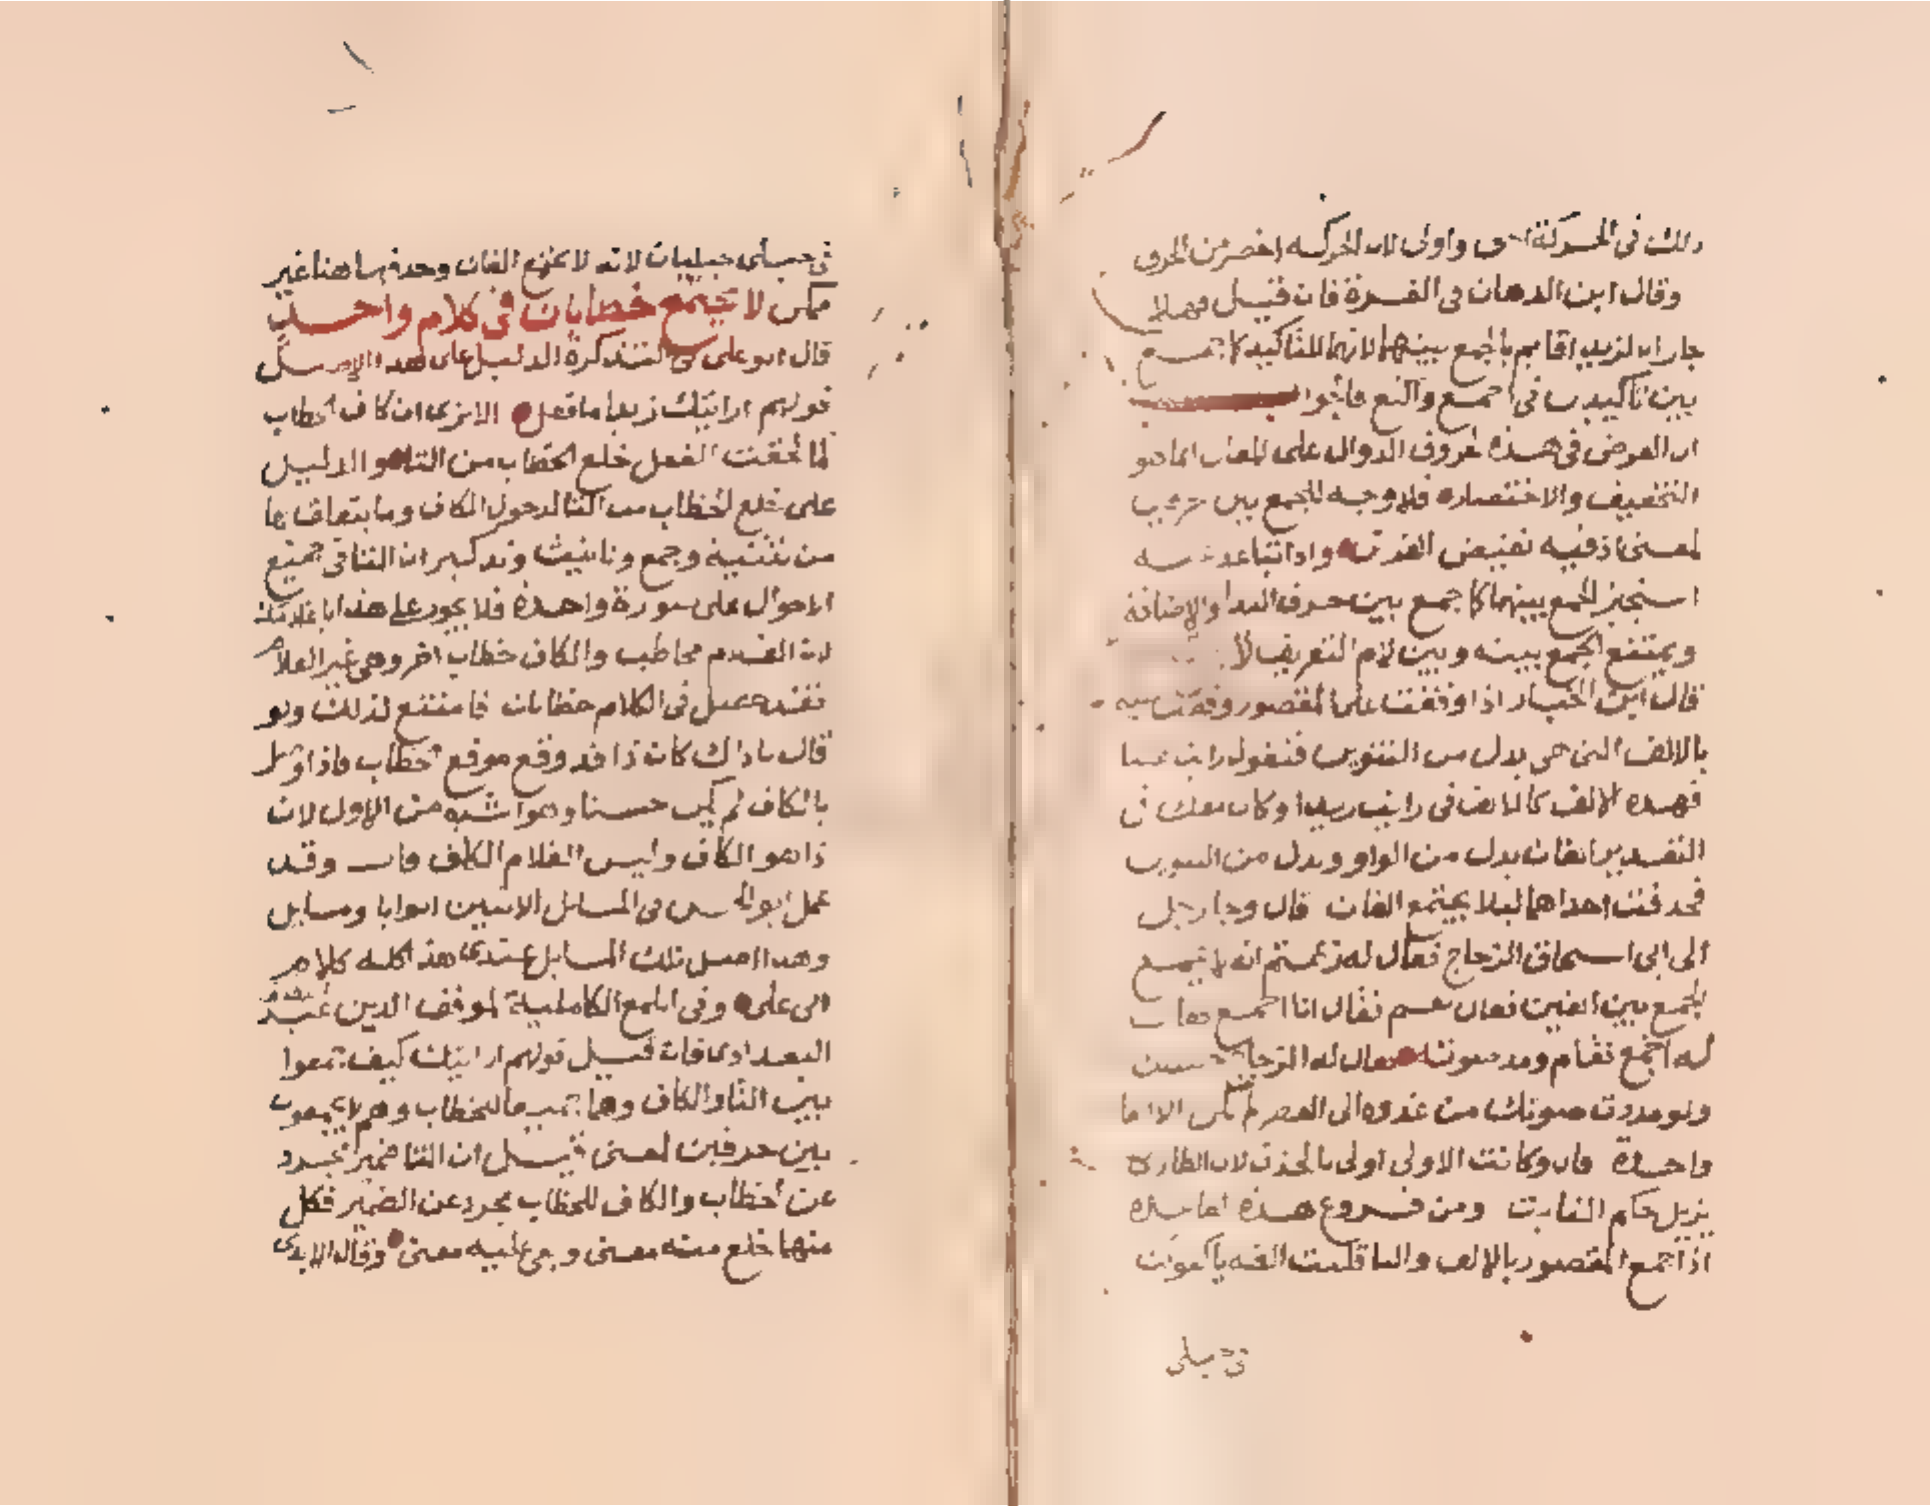 ذلك في الحركة احق واولى لان الحركه اخصر من الحرف
وقال ابن الدهان في الغرة فان قيل فهلا
جاز ان لزيدا قايم بالجمع بينهما لانهما للتاكيد كما جمع
بين تاكيدين في اجمع واكتع فالجواب
ان الغرض في هذه الحروف الدوال على المعان انما هو
التخفيف والاختصار فلا وجه للجمع بين حرفين
لمعنى اذ فيه نقيض الغرض واذا تباعد عنه
استجيز الجمع بينهما كما جمع بين حرف الندا والاضافة
ويمتنع الجمع بينه وبين لام التعريف
قال ابن الخباز اذا وقفت على المقصور وقفت عليه
بالالف التي هي بدل من التنوين فتقول رايت عصا
فهذه الالف كالالف في رايت زيدا وكان معك في
التقدير الفان بدل من الواو وبدل من التنوين
فحذفت احداهما ليلا يجتمع الفان قال وجا رجل
الى ابي اسحاق الزجاج فقال له زعمتم انه لا يجمع
الجمع بين الفين فقال نعم فقال انا اجمع فقال
له اجمع فقام ومد صوته فقال له الزجاج حسبك
ولو مددت صوتك من غدوه الى العصر لم تكن الا الفا
واحدة قال وكانت الاولى اولى بالحذف لان الطارئ
يزيل حكم الثابت ومن فروع هذه القاعده
اذا جمع المقصور بالالف والتا قلبت الفه يا
في حبلى
في حبلى حبليات لانه لا يجتمع الفان وحذفها هنا غير
ممكن لا يجتمع خطابان في كلام واحد
قال ابو علي في التذكرة الدليل على هذا الاصل
قولهم ارايتك زيدا ما فعل الا ترى ان كاف الخطاب
لما لحقت الفعل خلع الخطاب من التا والدليل
على خلع الخطاب من التا لدخول الكاف وما يتعاقب بها
من تثنية وجمع وتانيث وتذكير ان التا في جميع
الاحوال على صورة واحدة فلا يجوز على هذا يا غلامك
لان الغلام مخاطب والكاف خطاب اخر وهي غير الغلام
فقد حصل في الكلام خطابان فامتنع لذلك ولو
قال يا ذاك كان ذا قد وقع موقع الخطاب فاذا وصل
بالكاف لم يكن حسنا وهو اشبه من الاول لان
ذا هو الكاف وليس الغلام الكاف قال وقد
عمل ابو الحسن في المسايل الاثنين ابوابا ومسايل
وهذا اصل تلك المسايل عندي هذا كله كلام
ابي علي وفي اللمع الكاملية لموفق الدين عبد اللطيف
البغدادي فان قيل قولهم ارايتك كيف جمعوا
بين التا والكاف وهما جميعا للخطاب وهم لا يجمعون
بين حرفين لمعنى قيل ان التا ضمير مجرد
عن الخطاب والكاف للخطاب مجرد عن الضمير فكل
منهما خلع منه معنى وبقي عليه معنى وقال الابدي